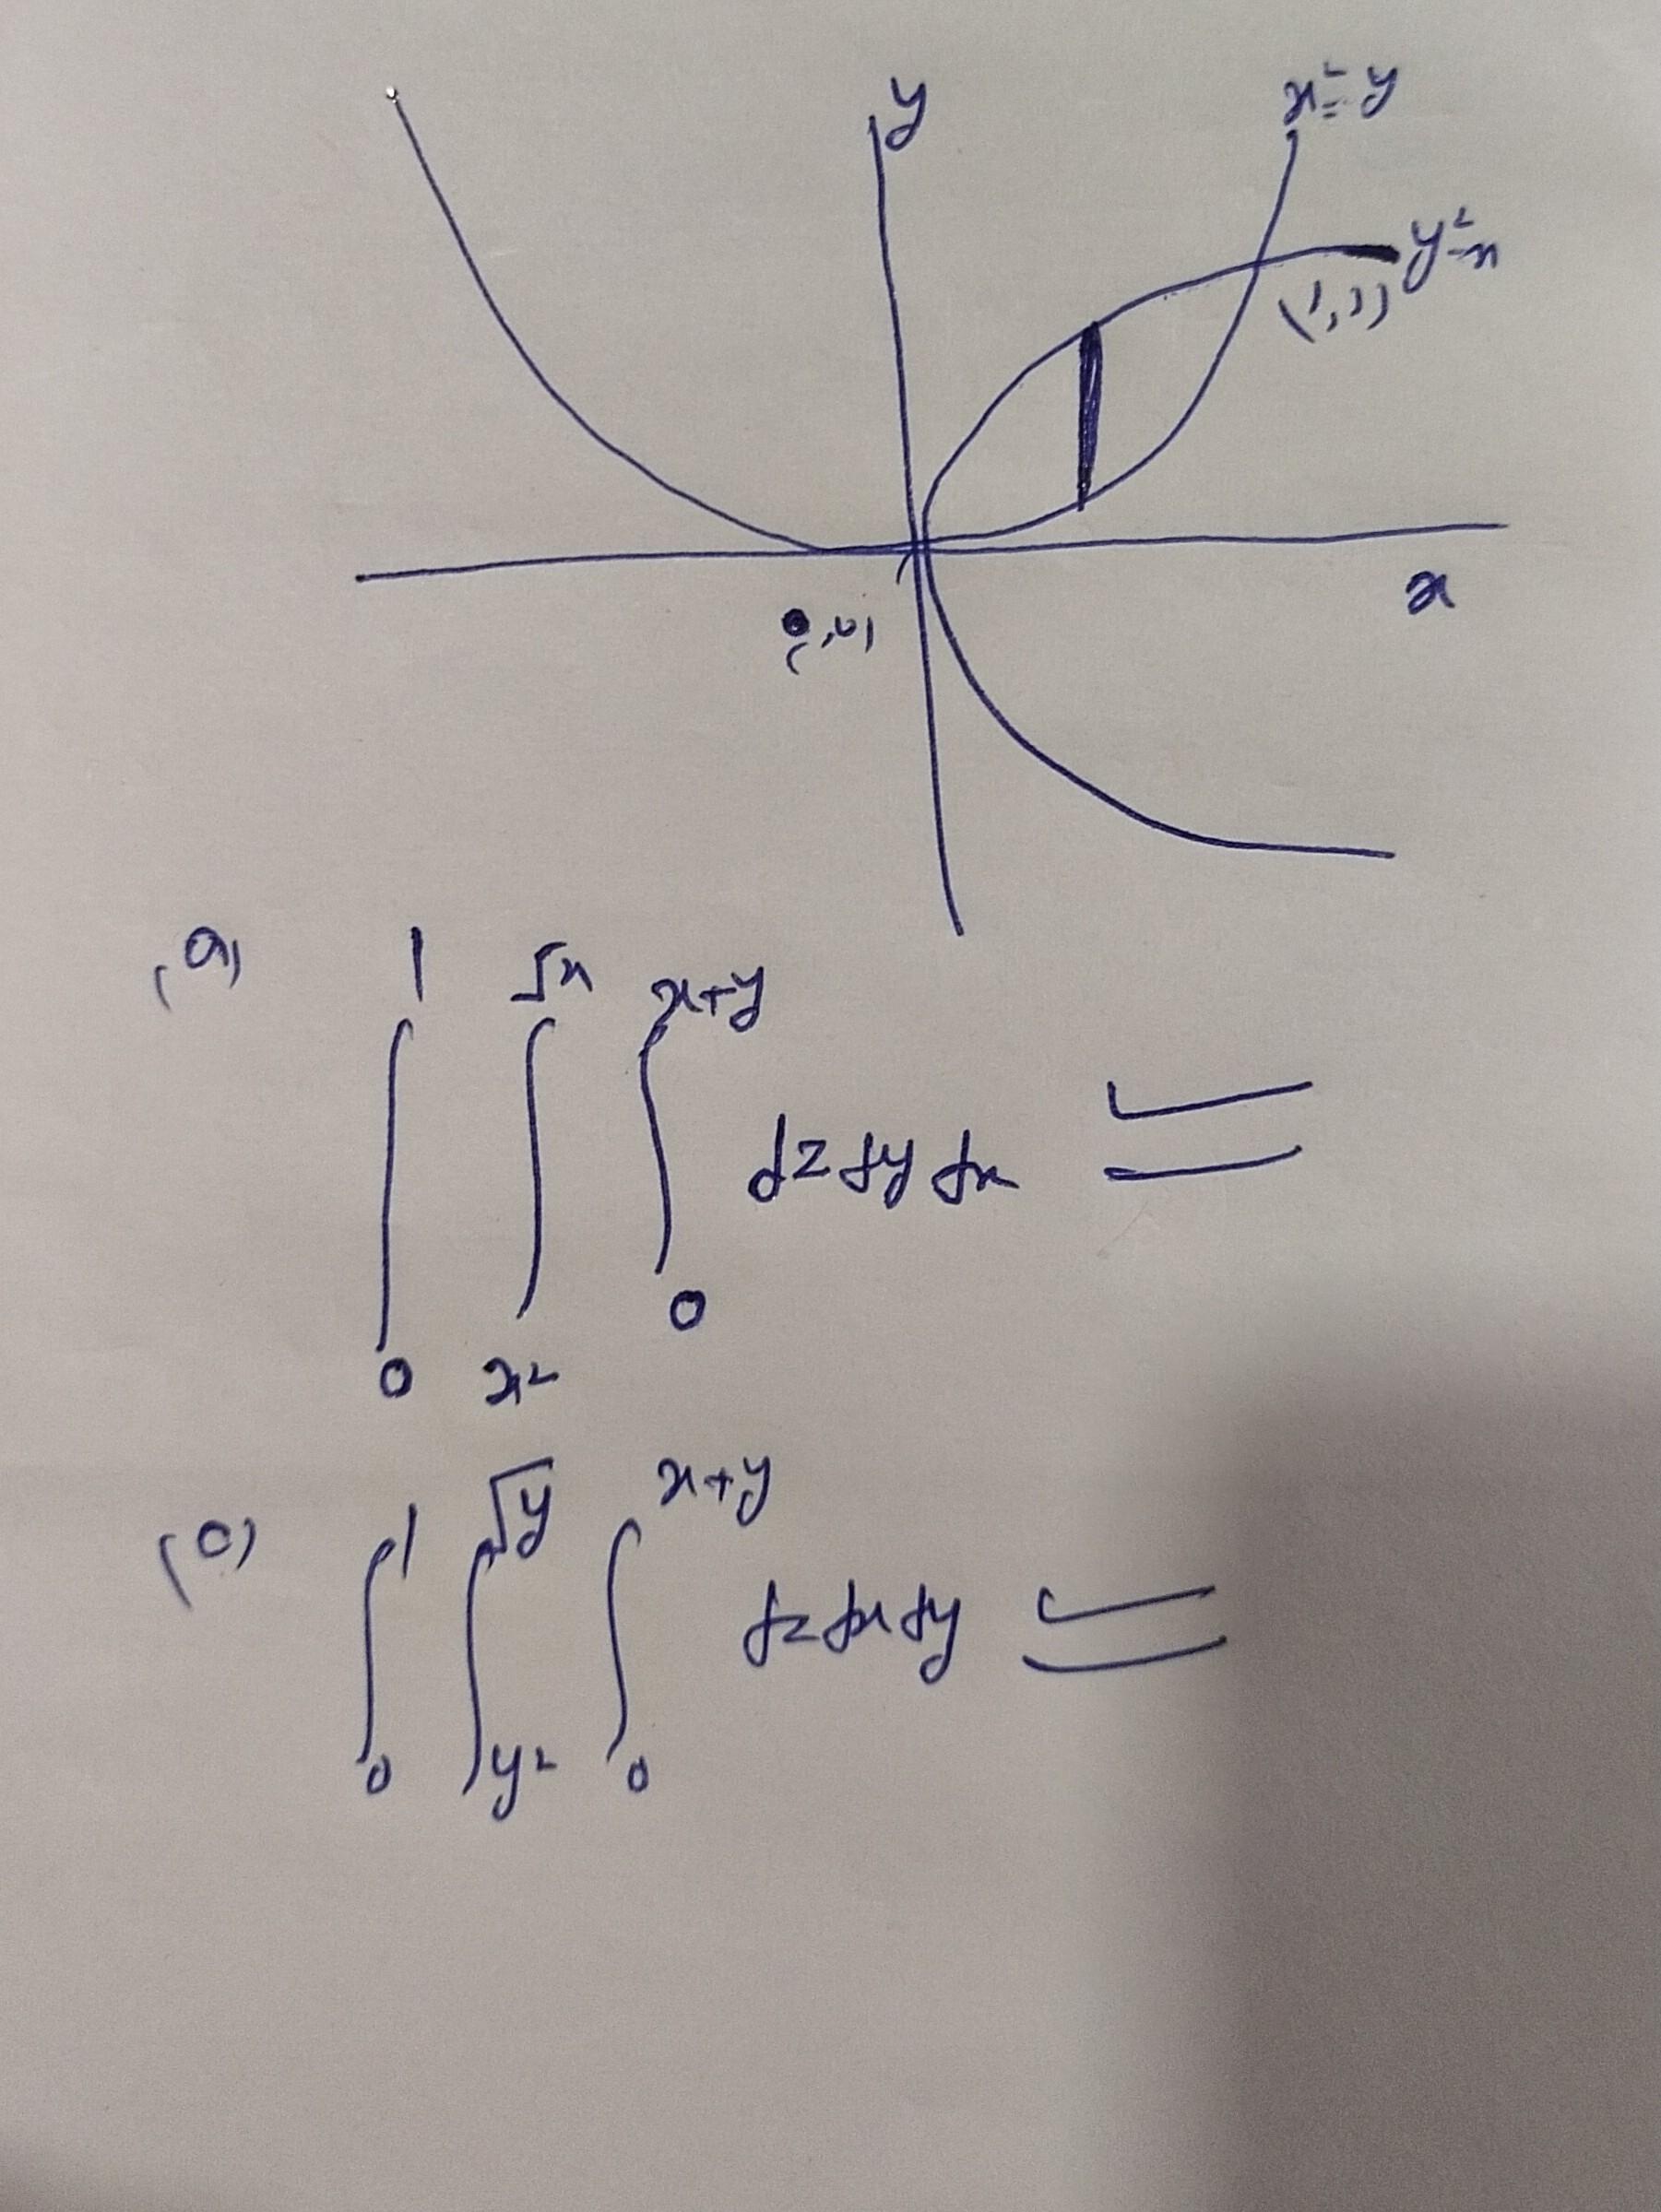 y
x² = y
y² = x
(1,1)
x
(0,0)
(a) ∫₀¹ ∫_{x²}^{√x} ∫₀^{x+y} dz dy dx
(c) ∫₀¹ ∫_{y²}^{√y} ∫₀^{x+y} dz dx dy